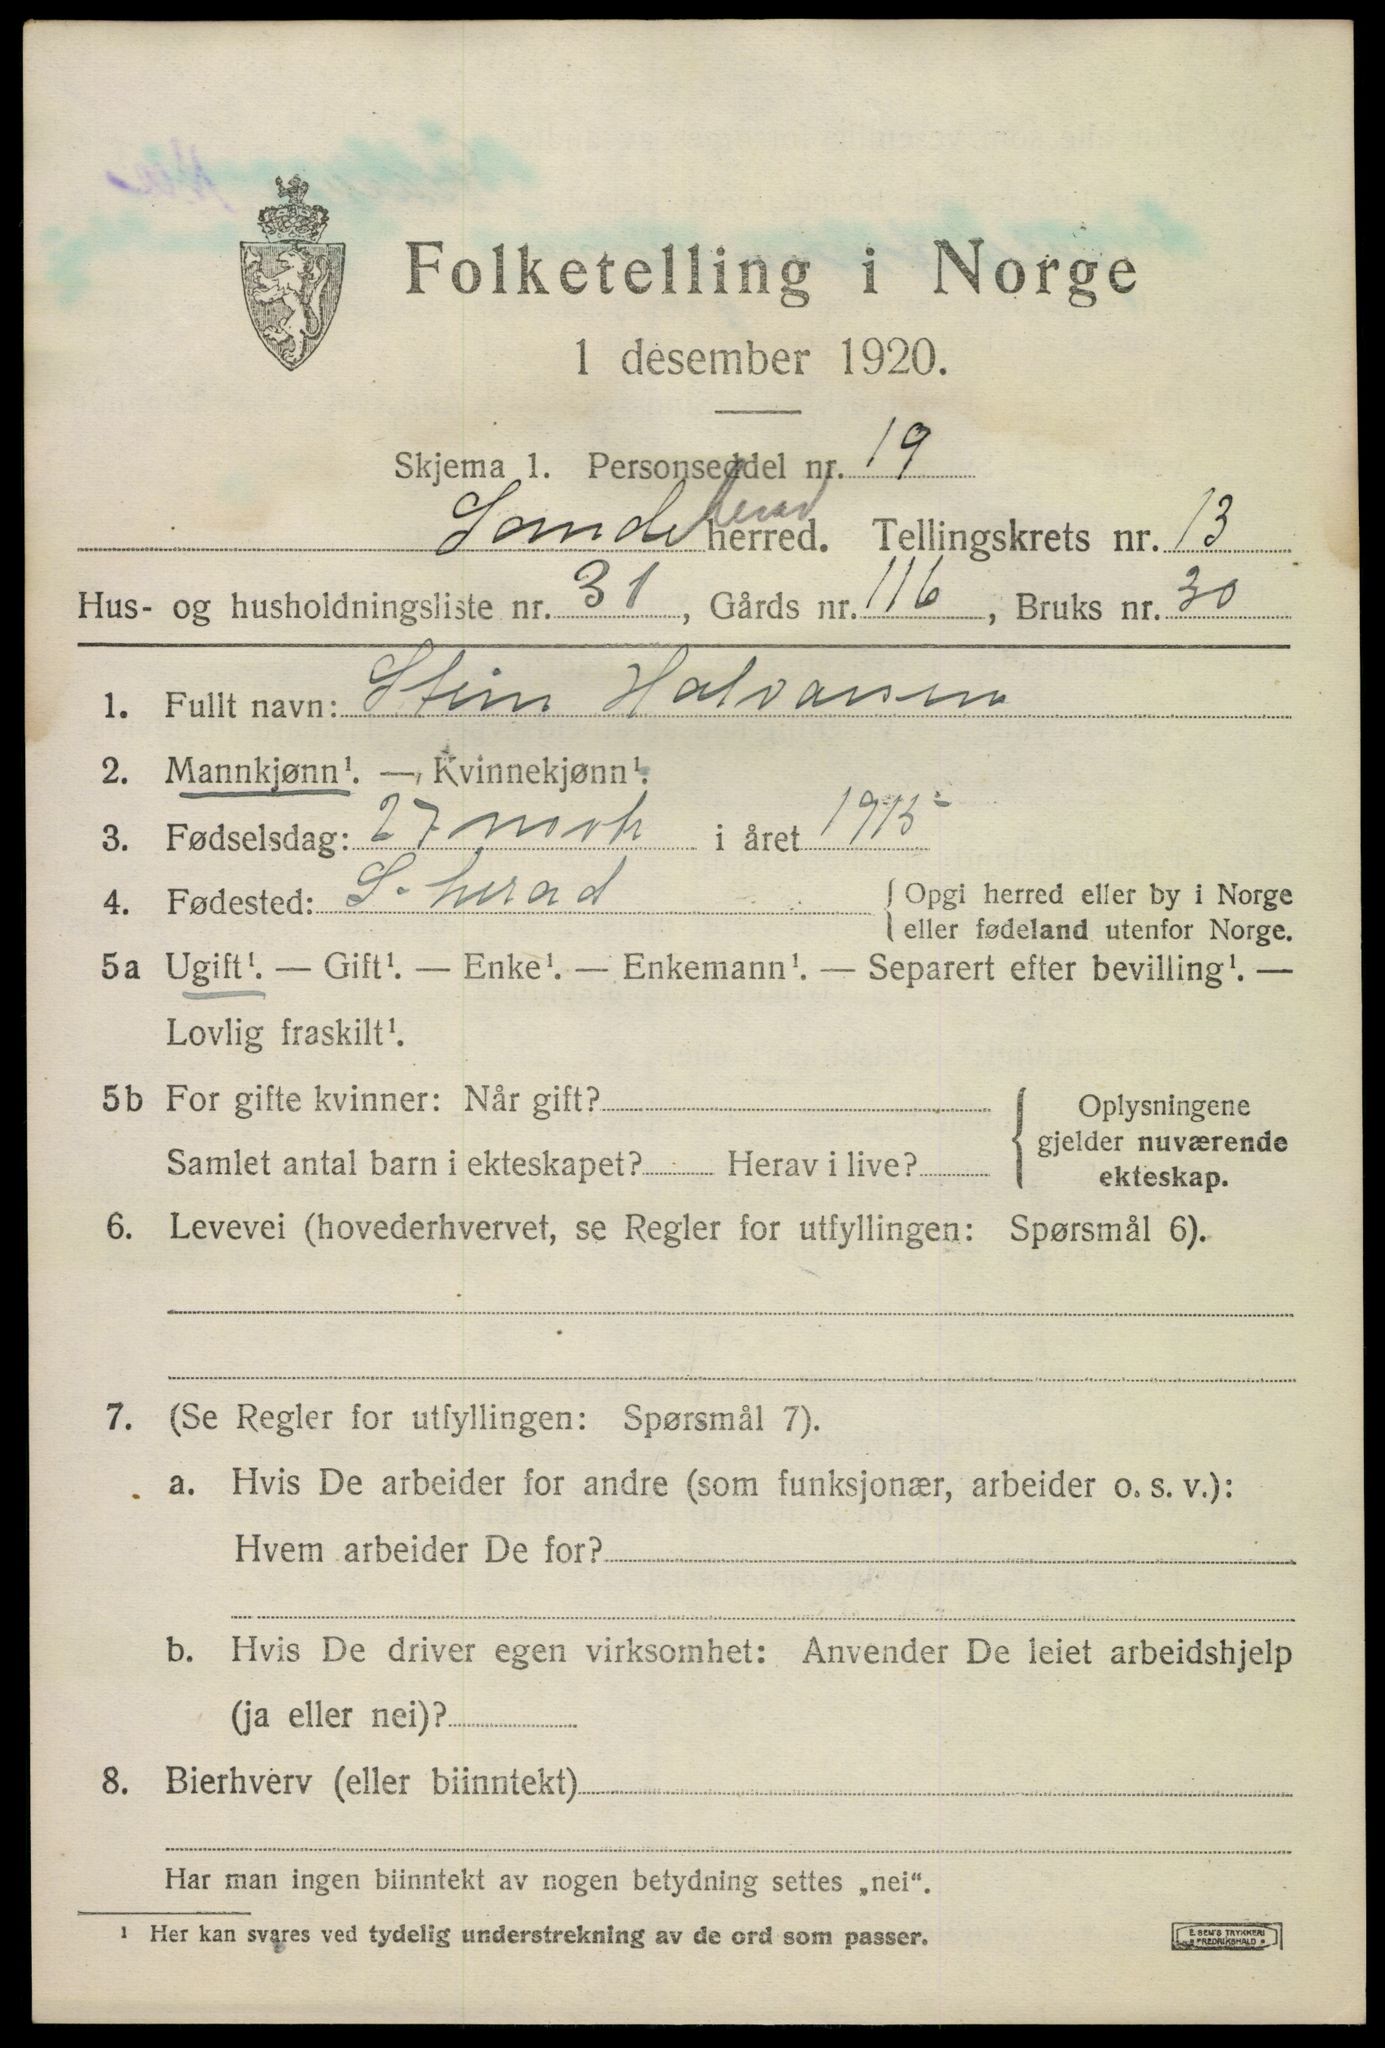 Folketelling i Norge
1 desember 1920.
Skjema 1. Personseddel nr. 19
Sandeherad herred. Tellingskrets nr. 13
Hus- og husholdningsliste nr. 31, Gårds nr. 116, Bruks nr. 30
1. Fullt navn: Stein Halvorsen
2. Mannkjønn¹. — Kvinnekjønn¹.
3. Fødselsdag: 27 i året 1915
4. Fødested: S. herad { Opgi herred eller by i Norge
eller fødeland utenfor Norge.
5a Ugift¹. — Gift¹. — Enke¹. — Enkemann¹. — Separert efter bevilling¹. —
Lovlig fraskilt¹.
5b For gifte kvinner: Når gift?
Samlet antal barn i ekteskapet? Herav i live?
{ Oplysningene
gjelder nuværende
ekteskap.
6. Levevei (hovederhvervet, se Regler for utfyllingen: Spørsmål 6).
7. (Se Regler for utfyllingen: Spørsmål 7).
a. Hvis De arbeider for andre (som funksjonær, arbeider o. s. v.):
Hvem arbeider De for?
b. Hvis De driver egen virksomhet: Anvender De leiet arbeidshjelp
(ja eller nei)?
8. Bierhverv (eller biinntekt)
Har man ingen biinntekt av nogen betydning settes „nei“.
¹ Her kan svares ved tydelig understrekning av de ord som passer.
E. SEM'S TRYKKERI
FREDRIKSHALD